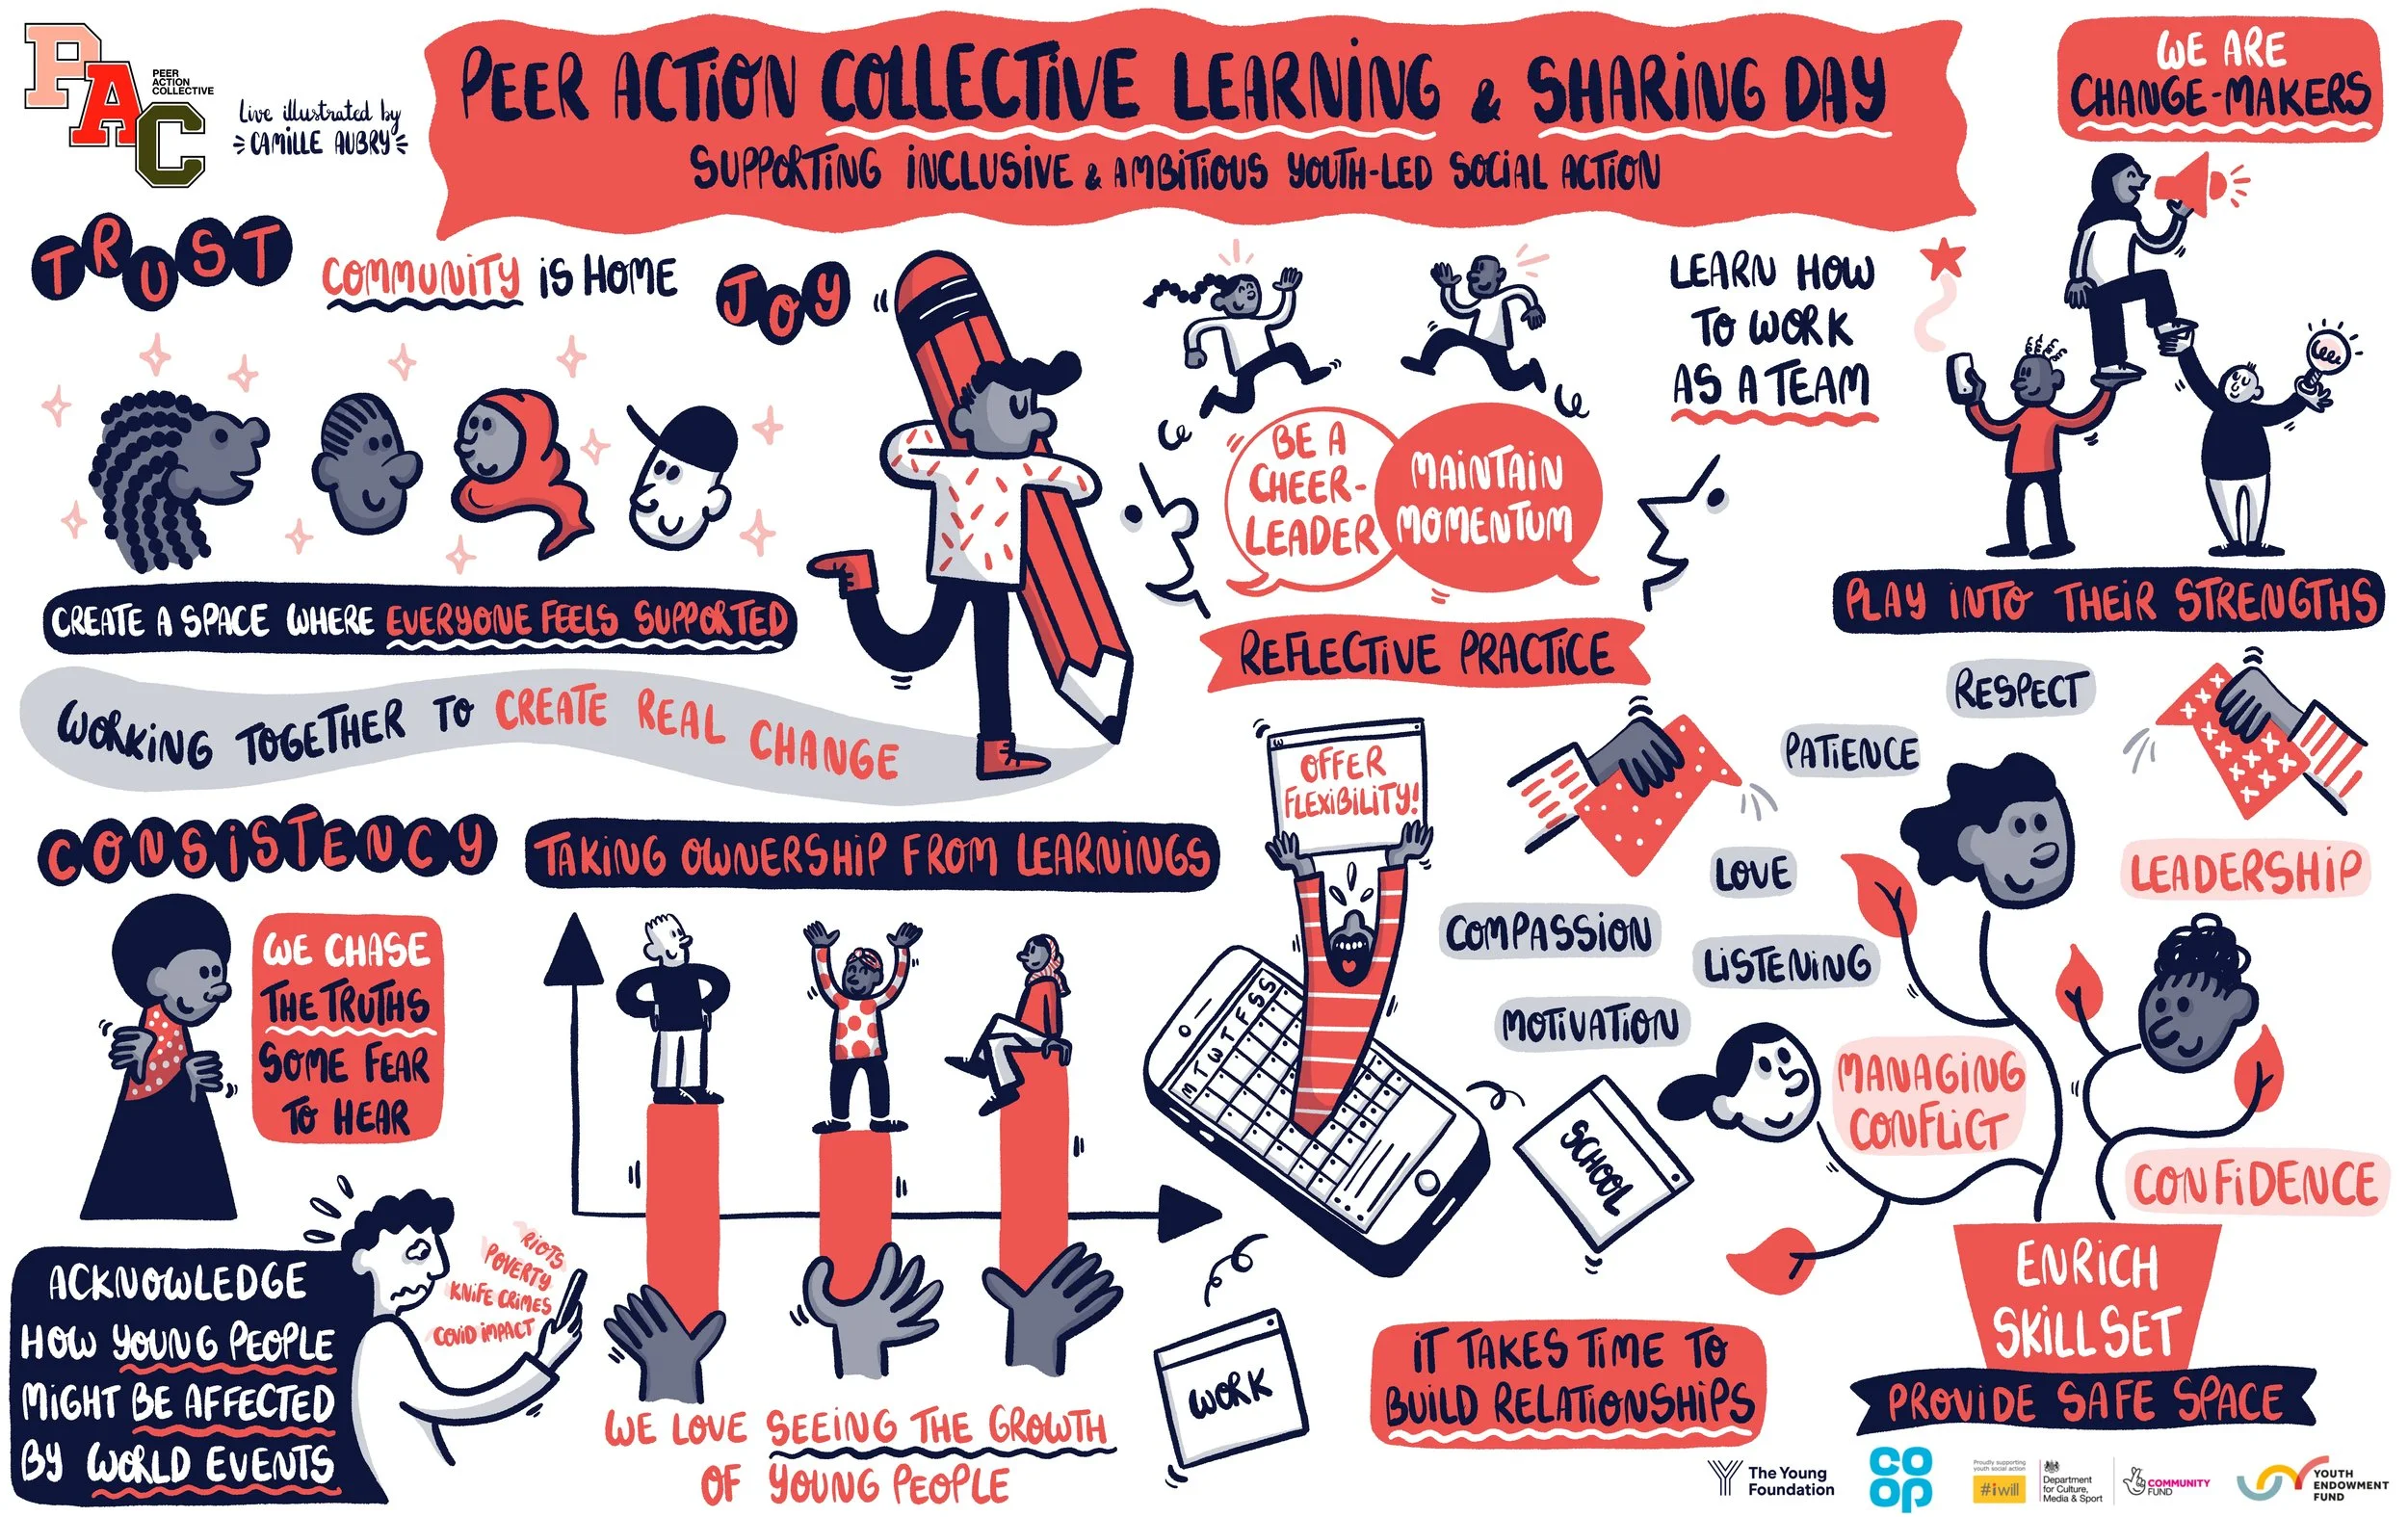 PAC
PEER
ACTION
COLLECTIVE
Live illustrated by
CAMILLE AUBRY
PEER ACTION COLLECTIVE LEARNING & SHARING DAY
SUPPORTING INCLUSIVE & AMBITIOUS YOUTH-LED SOCIAL ACTION
WE ARE
CHANGE-MAKERS
TRUST
COMMUNITY IS HOME
JOY
LEARN HOW
TO WORK
AS A TEAM
BE A
CHEER-
LEADER
MAINTAIN
MOMENTUM
CREATE A SPACE WHERE EVERYONE FEELS SUPPORTED
PLAY INTO THEIR STRENGTHS
REFLECTIVE PRACTICE
WORKING TOGETHER TO CREATE REAL CHANGE
OFFER
FLEXIBILITY!
RESPECT
PATIENCE
LOVE
LEADERSHIP
COMPASSION
LISTENING
MOTIVATION
MANAGING
CONFLICT
CONFIDENCE
CONSISTENCY
TAKING OWNERSHIP FROM LEARNINGS
WE CHASE
THE TRUTHS
SOME FEAR
TO HEAR
M T W T F S S
SCHOOL
WORK
ACKNOWLEDGE
HOW YOUNG PEOPLE
MIGHT BE AFFECTED
BY WORLD EVENTS
RIOTS
POVERTY
KNIFE CRIMES
COVID IMPACT
WE LOVE SEEING THE GROWTH
OF YOUNG PEOPLE
IT TAKES TIME TO
BUILD RELATIONSHIPS
ENRICH
SKILLSET
PROVIDE SAFE SPACE
The Young
Foundation
CO
OP
Proudly supporting
youth social action
#iwill
Department
for Culture,
Media & Sport
COMMUNITY
FUND
YOUTH
ENDOWMENT
FUND